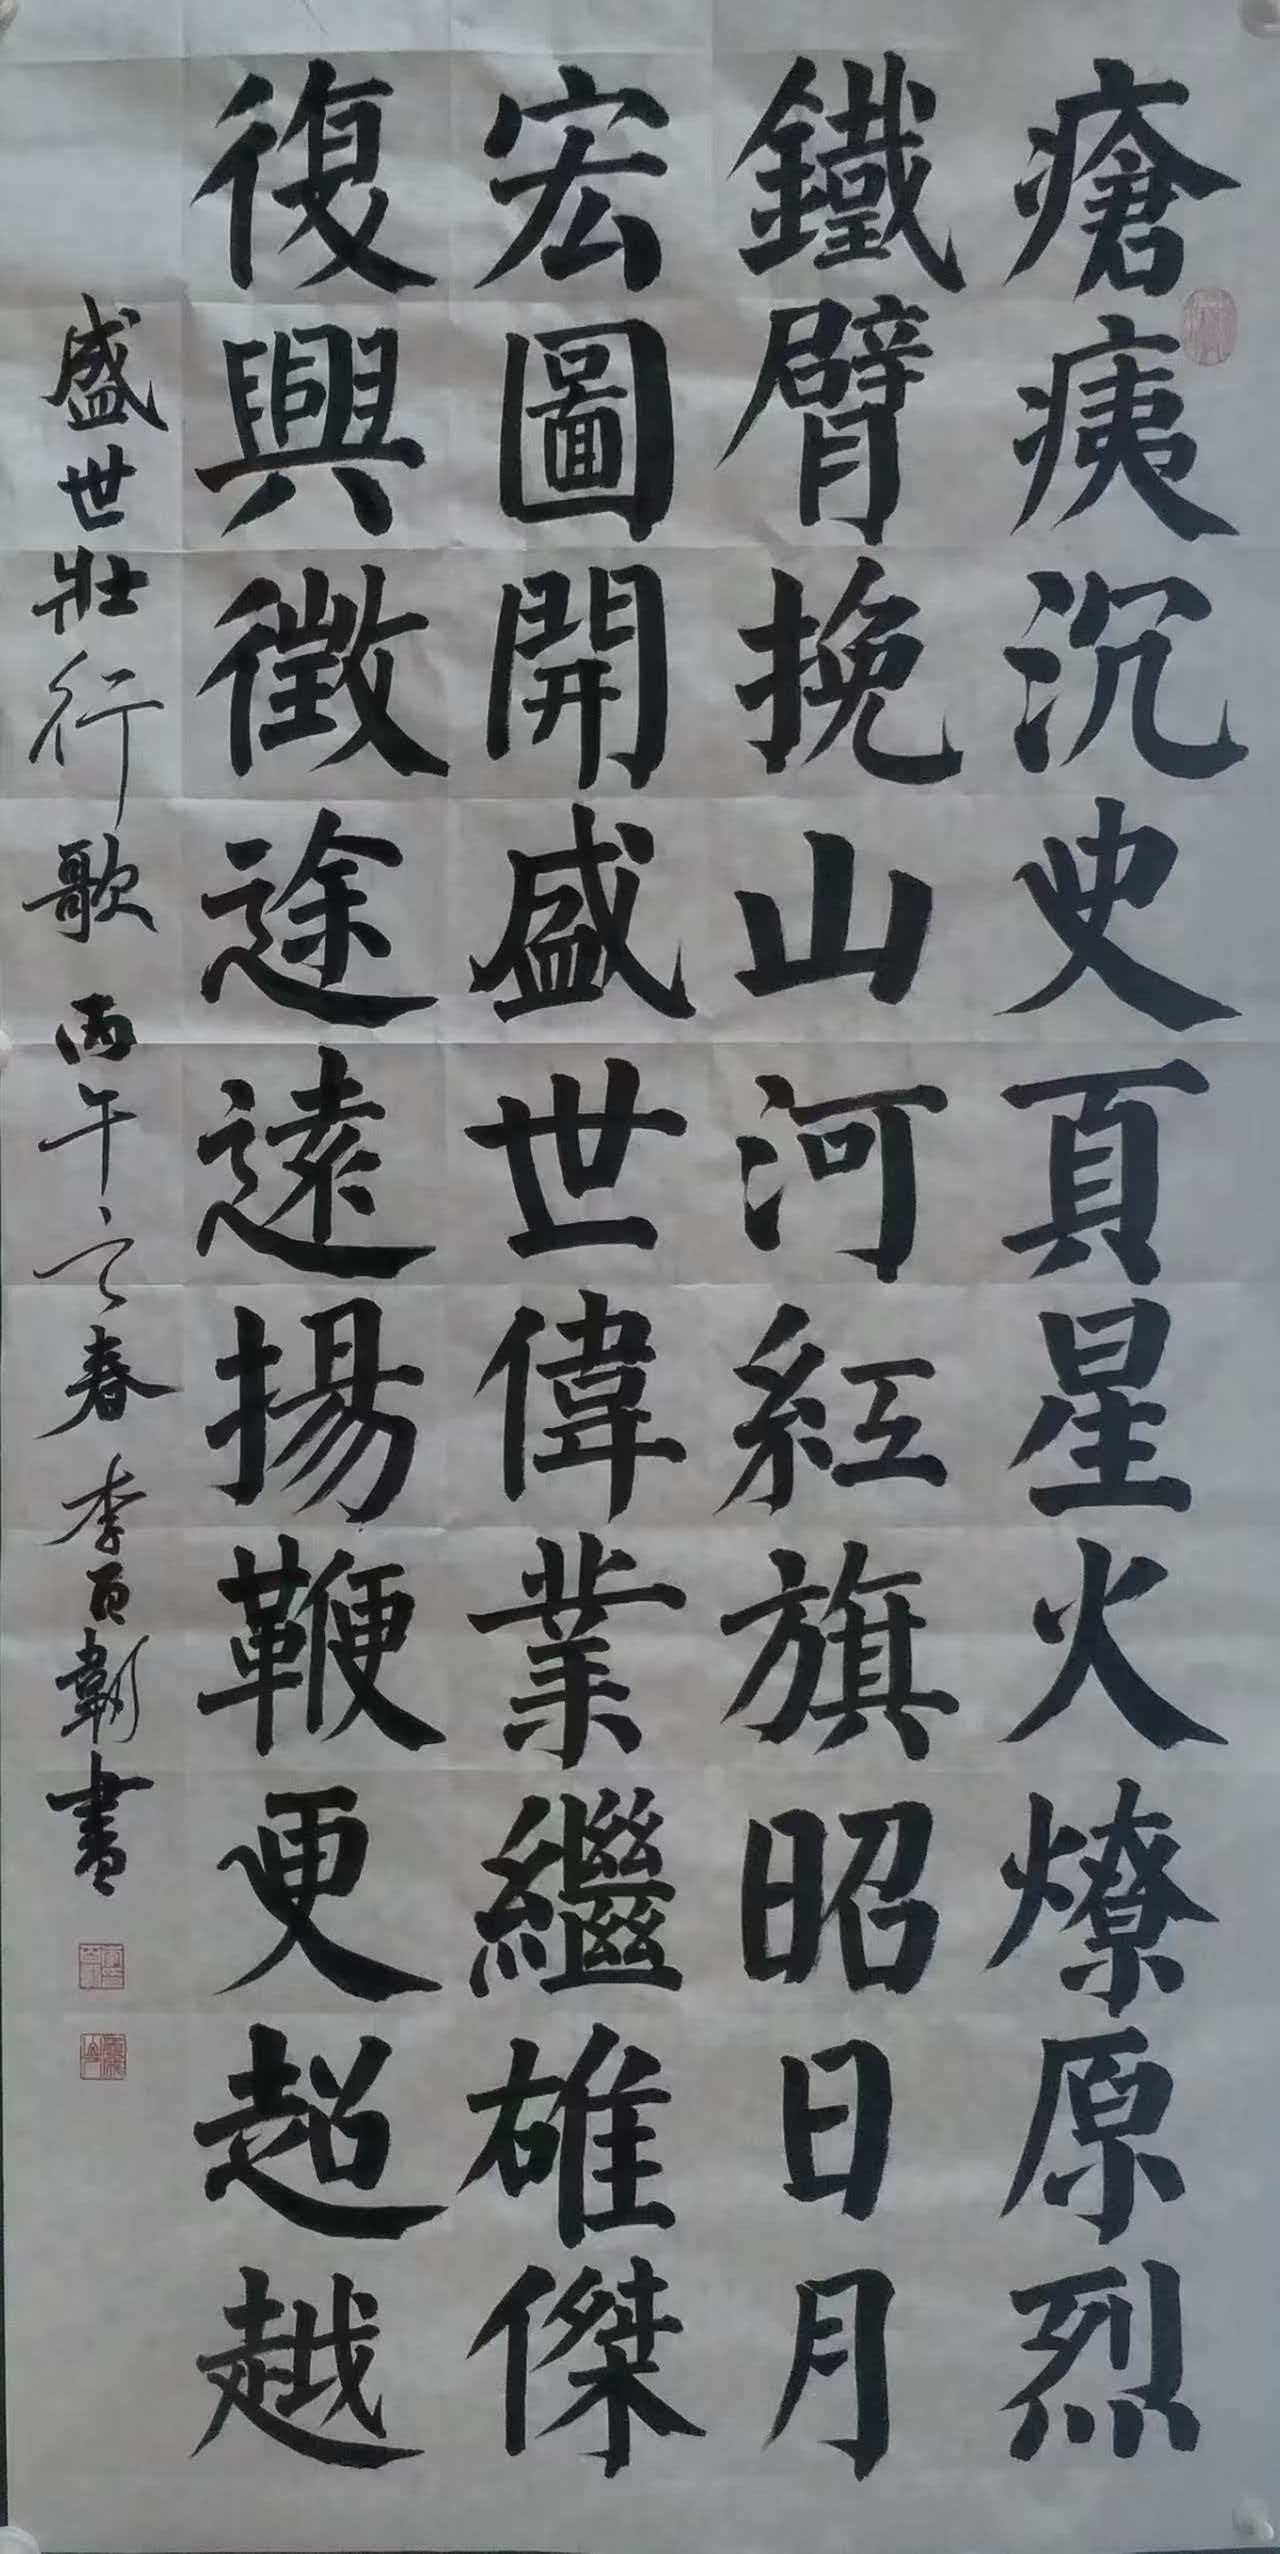 瘡痍沉史頁星火燎原烈
鐵臂挽山河紅旗昭日月
宏圖開盛世偉業繼雄傑
復興徵途遠揚鞭更超越
盛世壯行歌 丙午之春 李百韌書